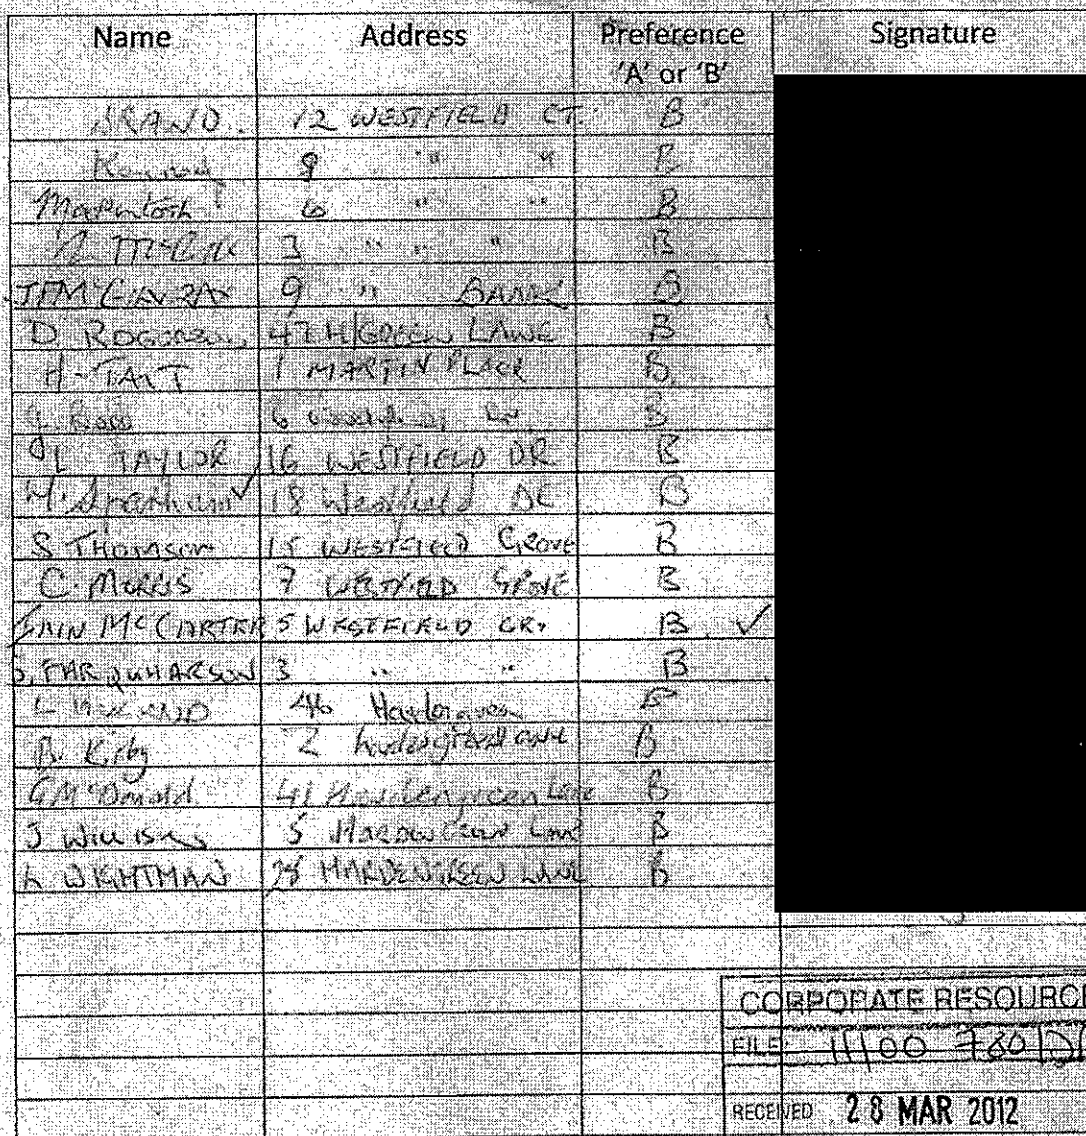 Name Address Preference Signature
'A' or 'B'
BRAND. 12 WESTFIELD CT. B
9 " " B
6 " " B
3 " " " B
9 " BANK B
D ROGERSON 47 H/GREEN LANE B
H. TAIT 1 MARTIN PLACE B
J. Ross 6 B
L TAYLOR 16 WESTFIELD DR B
18 Westfield DR B
S THOMSON 15 WESTFIELD GROVE B
C. MORRIS 7 WESTFIELD GROVE B
IAIN McCARTER 5 WESTFIELD GR. B ✓
D. FARQUHARSON 3 " " B
L 46 Hardengreen B
R. Kirby 2 B
G McDonald 41 Hardengreen Lane B
J 5 HARDENGREEN LANE B
L WIGHTMAN 28 HARDENGREEN LANE B
CORPORATE RESOURCE
FILE: 11/00 760/D
RECEIVED 28 MAR 2012